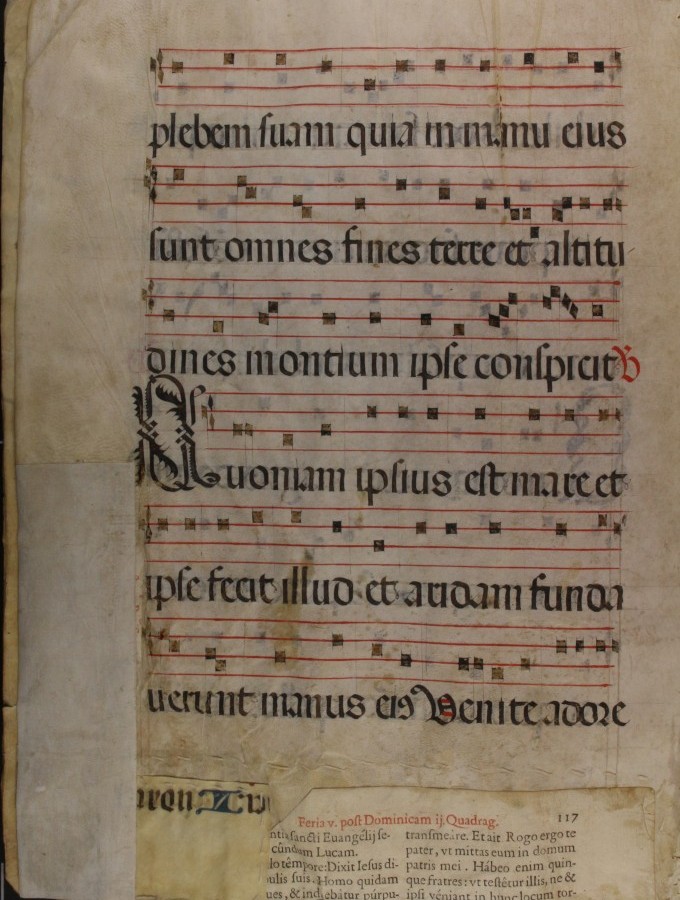 plebem suam quia in manu eius
sunt omnes fines terre et altitu
dines montium ipse conspicit
Quoniam ipsius est mare et
ipse fecit illud et aridam funda
verunt manus ei9 Venite adore
Feria v. post Dominicam ij. Quadrag. 117
ntia sancti Euangélij se-
cúndum Lucam.
lo témpore: Dixit Iesus di-
pulis suis. Homo quidam
ues, & induebátur púrpu-
transmeáre. Et ait Rogo ergo te
pater, vt mittas eum in domum
patris mei. Hábeo enim quin-
que fratres: vt testétur illis, ne &
ipsi véniant in hunc locum tor-